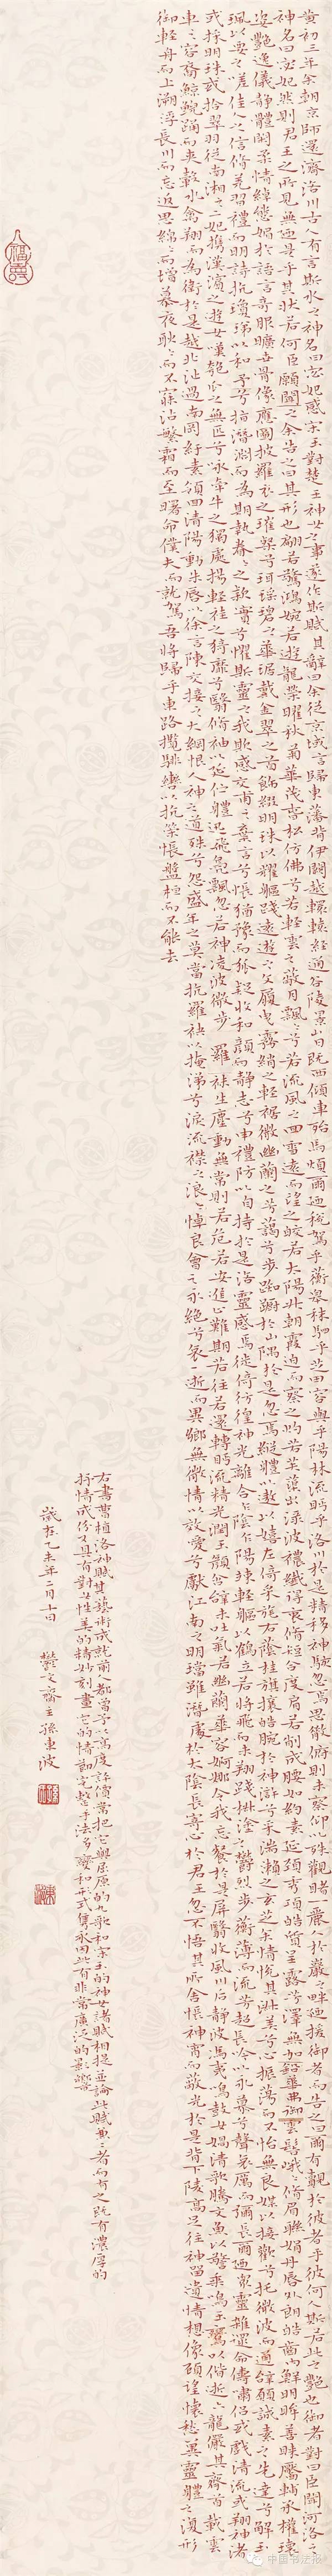 黃初三年余朝京師還濟洛川古人有言斯水之神名曰宓妃感宋玉對楚王神女之事遂作斯賦其辭曰余從京域言歸東藩背伊闕越轘轅經通谷陵景山日既西傾車殆馬煩爾迺稅駕乎蘅皋秣駟乎芝田容與乎陽林流眄乎洛川於是精移神駭忽焉思散俯則未察仰以殊觀睹一麗人於巖之畔迺援御者而告之曰爾有覿於彼者乎彼何人斯若此之艷也御者對曰臣聞河洛之
神名曰宓妃然則君王之所見無迺是乎其狀若何臣願聞之余告之曰其形也翩若驚鴻婉若遊龍榮曜秋菊華茂春松仿佛兮若輕雲之蔽月飄飄兮若流風之回雪遠而望之皎若太陽升朝霞迫而察之灼若芙蕖出淥波襛纖得衷脩短合度肩若削成腰如約素延頸秀項皓質呈露芳澤無加鉛華弗御雲髻峨峨脩眉聯娟丹唇外朗皓齒內鮮明眸善睞靨輔承權瓌
姿艷逸儀靜體閑柔情綽態媚於語言奇服曠世骨像應圖披羅衣之璀粲兮珥瑤碧之華琚戴金翠之首飾綴明珠以耀軀踐遠遊之文履曳霧綃之輕裾微幽蘭之芳藹兮步踟躕於山隅於是忽焉縱體以遨以嬉左倚采旄右蔭桂旗攘皓腕於神滸兮采湍瀨之玄芝余情悅其淑美兮心振蕩而不怡無良媒以接歡兮托微波而通辭願誠素之先達兮解玉
珮以要之嗟佳人之信脩羌習禮而明詩抗瓊珶以和予兮指潛淵而為期執眷眷之款實兮懼斯靈之我欺感交甫之棄言兮悵猶豫而狐疑收和顏而靜志兮申禮防以自持於是洛靈感焉徙倚彷徨神光離合乍陰乍陽竦輕軀以鶴立若將飛而未翔踐椒塗之鬱烈步蘅薄而流芳超長吟以永慕兮聲哀厲而彌長爾迺眾靈雜遝命儔嘯侶或戲清流或翔神渚
或採明珠或拾翠羽從南湘之二妃攜漢濱之遊女嘆匏瓜之無匹兮詠牽牛之獨處揚輕袿之猗靡兮翳脩袖以延佇體迅飛鳧飄忽若神凌波微步羅襪生塵動無常則若危若安進止難期若往若還轉眄流精光潤玉顏含辭未吐氣若幽蘭華容婀娜令我忘餐於是屏翳收風川后靜波馮夷鳴鼓女媧清歌騰文魚以警乘鳴玉鸞以偕逝六龍儼其齊首載雲
車之容裔鯨鯢踴而夾轂水禽翔而為衛於是越北沚過南岡紆素領回清陽動朱唇以徐言陳交接之大綱恨人神之道殊兮怨盛年之莫當抗羅袂以掩涕兮淚流襟之浪浪悼良會之永絕兮哀一逝而異鄉無微情以效愛兮獻江南之明璫雖潛處於太陰長寄心於君王忽不悟其所舍悵神宵而蔽光於是背下陵高足往神留遺情想像顧望懷愁冀靈體之復形
御輕舟而上溯浮長川而忘返思綿綿而增慕夜耿耿而不寐沾繁霜而至曙命僕夫而就駕吾將歸乎東路攬騑轡以抗策悵盤桓而不能去
右書曹植洛神賦其藝術成就前人都曾予以高度評價常把它與屈原的九歌和宋玉的神女諸賦相提並論此賦兼二者而有之既有濃厚的
抒情成份又具有對女性美的精妙刻畫它的情節完整手法多變和形式雋永因此有非常廣泛的影響
歲在乙未年二月十四 鬱文齋主孫東波
中国书法报